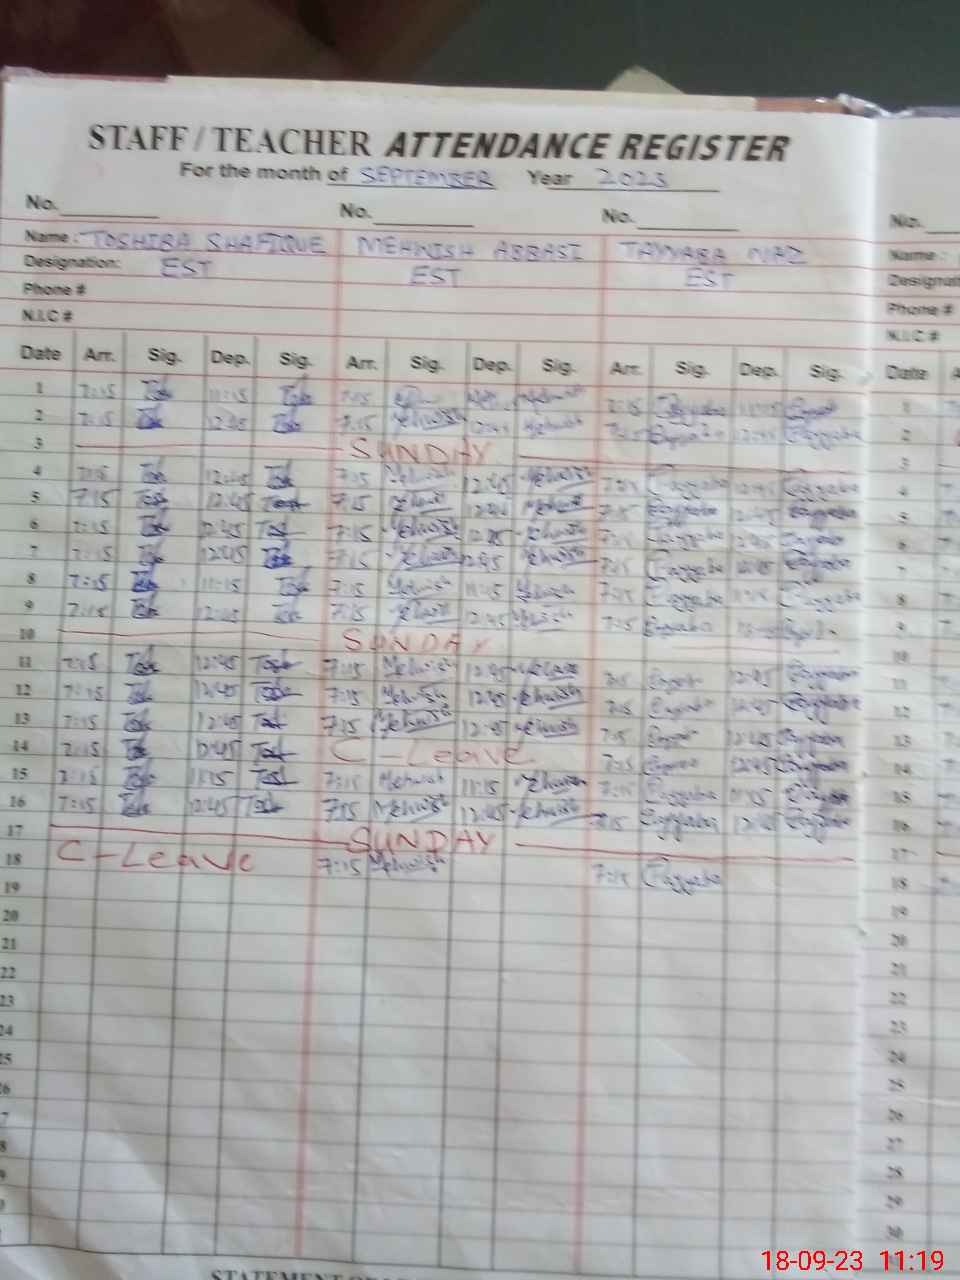 STAFF / TEACHER ATTENDANCE REGISTER
For the month of SEPTEMBER Year 2023
No. No. No. No.
Name: TOSHIBA SHAFIQUE MEHWISH ABBASI TAYYABA NIAZ Name:
Designation: EST EST EST
Phone # Phone #
N.I.C # N.I.C #
Date Arr. Sig. Dep. Sig. Arr. Sig. Dep. Sig. Arr. Sig. Dep. Sig. Date
1 7:15 Tosh 11:15 Tosh 7:15 Mehwish 7:15 Tayyaba 1
2 7:15 Tosh 12:45 Tosh 7:15 Mehwish 12:45 Mehwish 7:15 Tayyaba 12:45 Tayyaba 2
3 SUNDAY 3
4 7:15 Tosh 12:45 Tosh 7:15 Mehwish 12:45 Mehwish 7:15 Tayyaba 12:45 Tayyaba 4
5 7:15 Tosh 12:45 Tosh 7:15 Mehwish 12:45 Mehwish 7:15 Tayyaba 12:45 Tayyaba 5
6 7:15 Tosh 12:45 Tosh 7:15 Mehwish 12:45 Mehwish 7:15 Tayyaba 12:45 Tayyaba 6
7 7:15 Tosh 12:45 Tosh 7:15 Mehwish 12:45 Mehwish 7:15 Tayyaba 12:45 Tayyaba 7
8 7:15 Tosh 11:15 Tosh 7:15 Mehwish 11:15 Mehwish 7:15 Tayyaba 11:15 Tayyaba 8
9 7:15 Tosh 12:45 Tosh 7:15 Mehwish 12:45 Mehwish 7:15 Tayyaba 9
10 SUNDAY 10
11 7:15 Tosh 12:45 Tosh 7:15 Mehwish 12:45 Mehwish 7:15 Tayyaba 12:45 Tayyaba 11
12 7:15 Tosh 12:45 Tosh 7:15 Mehwish 12:45 Mehwish 7:15 Tayyaba 12:45 Tayyaba 12
13 7:15 Tosh 12:45 Tosh 7:15 Mehwish 12:45 Mehwish 7:15 Tayyaba 12:45 Tayyaba 13
14 7:15 Tosh 12:45 Tosh C - Leave 7:15 Tayyaba 12:45 Tayyaba 14
15 7:15 Tosh 11:15 Tosh 7:15 Mehwish 11:15 Mehwish 7:15 Tayyaba 11:15 Tayyaba 15
16 7:15 Tosh 12:45 Tosh 7:15 Mehwish 12:45 Mehwish 7:15 Tayyaba 12:45 Tayyaba 16
17 SUNDAY 17
18 C - Leave 7:15 Mehwish 7:15 Tayyaba 18
19 19
20 20
21 21
22 22
23 23
24 24
25 25
26
27
28
29
30
18-09-23 11:19